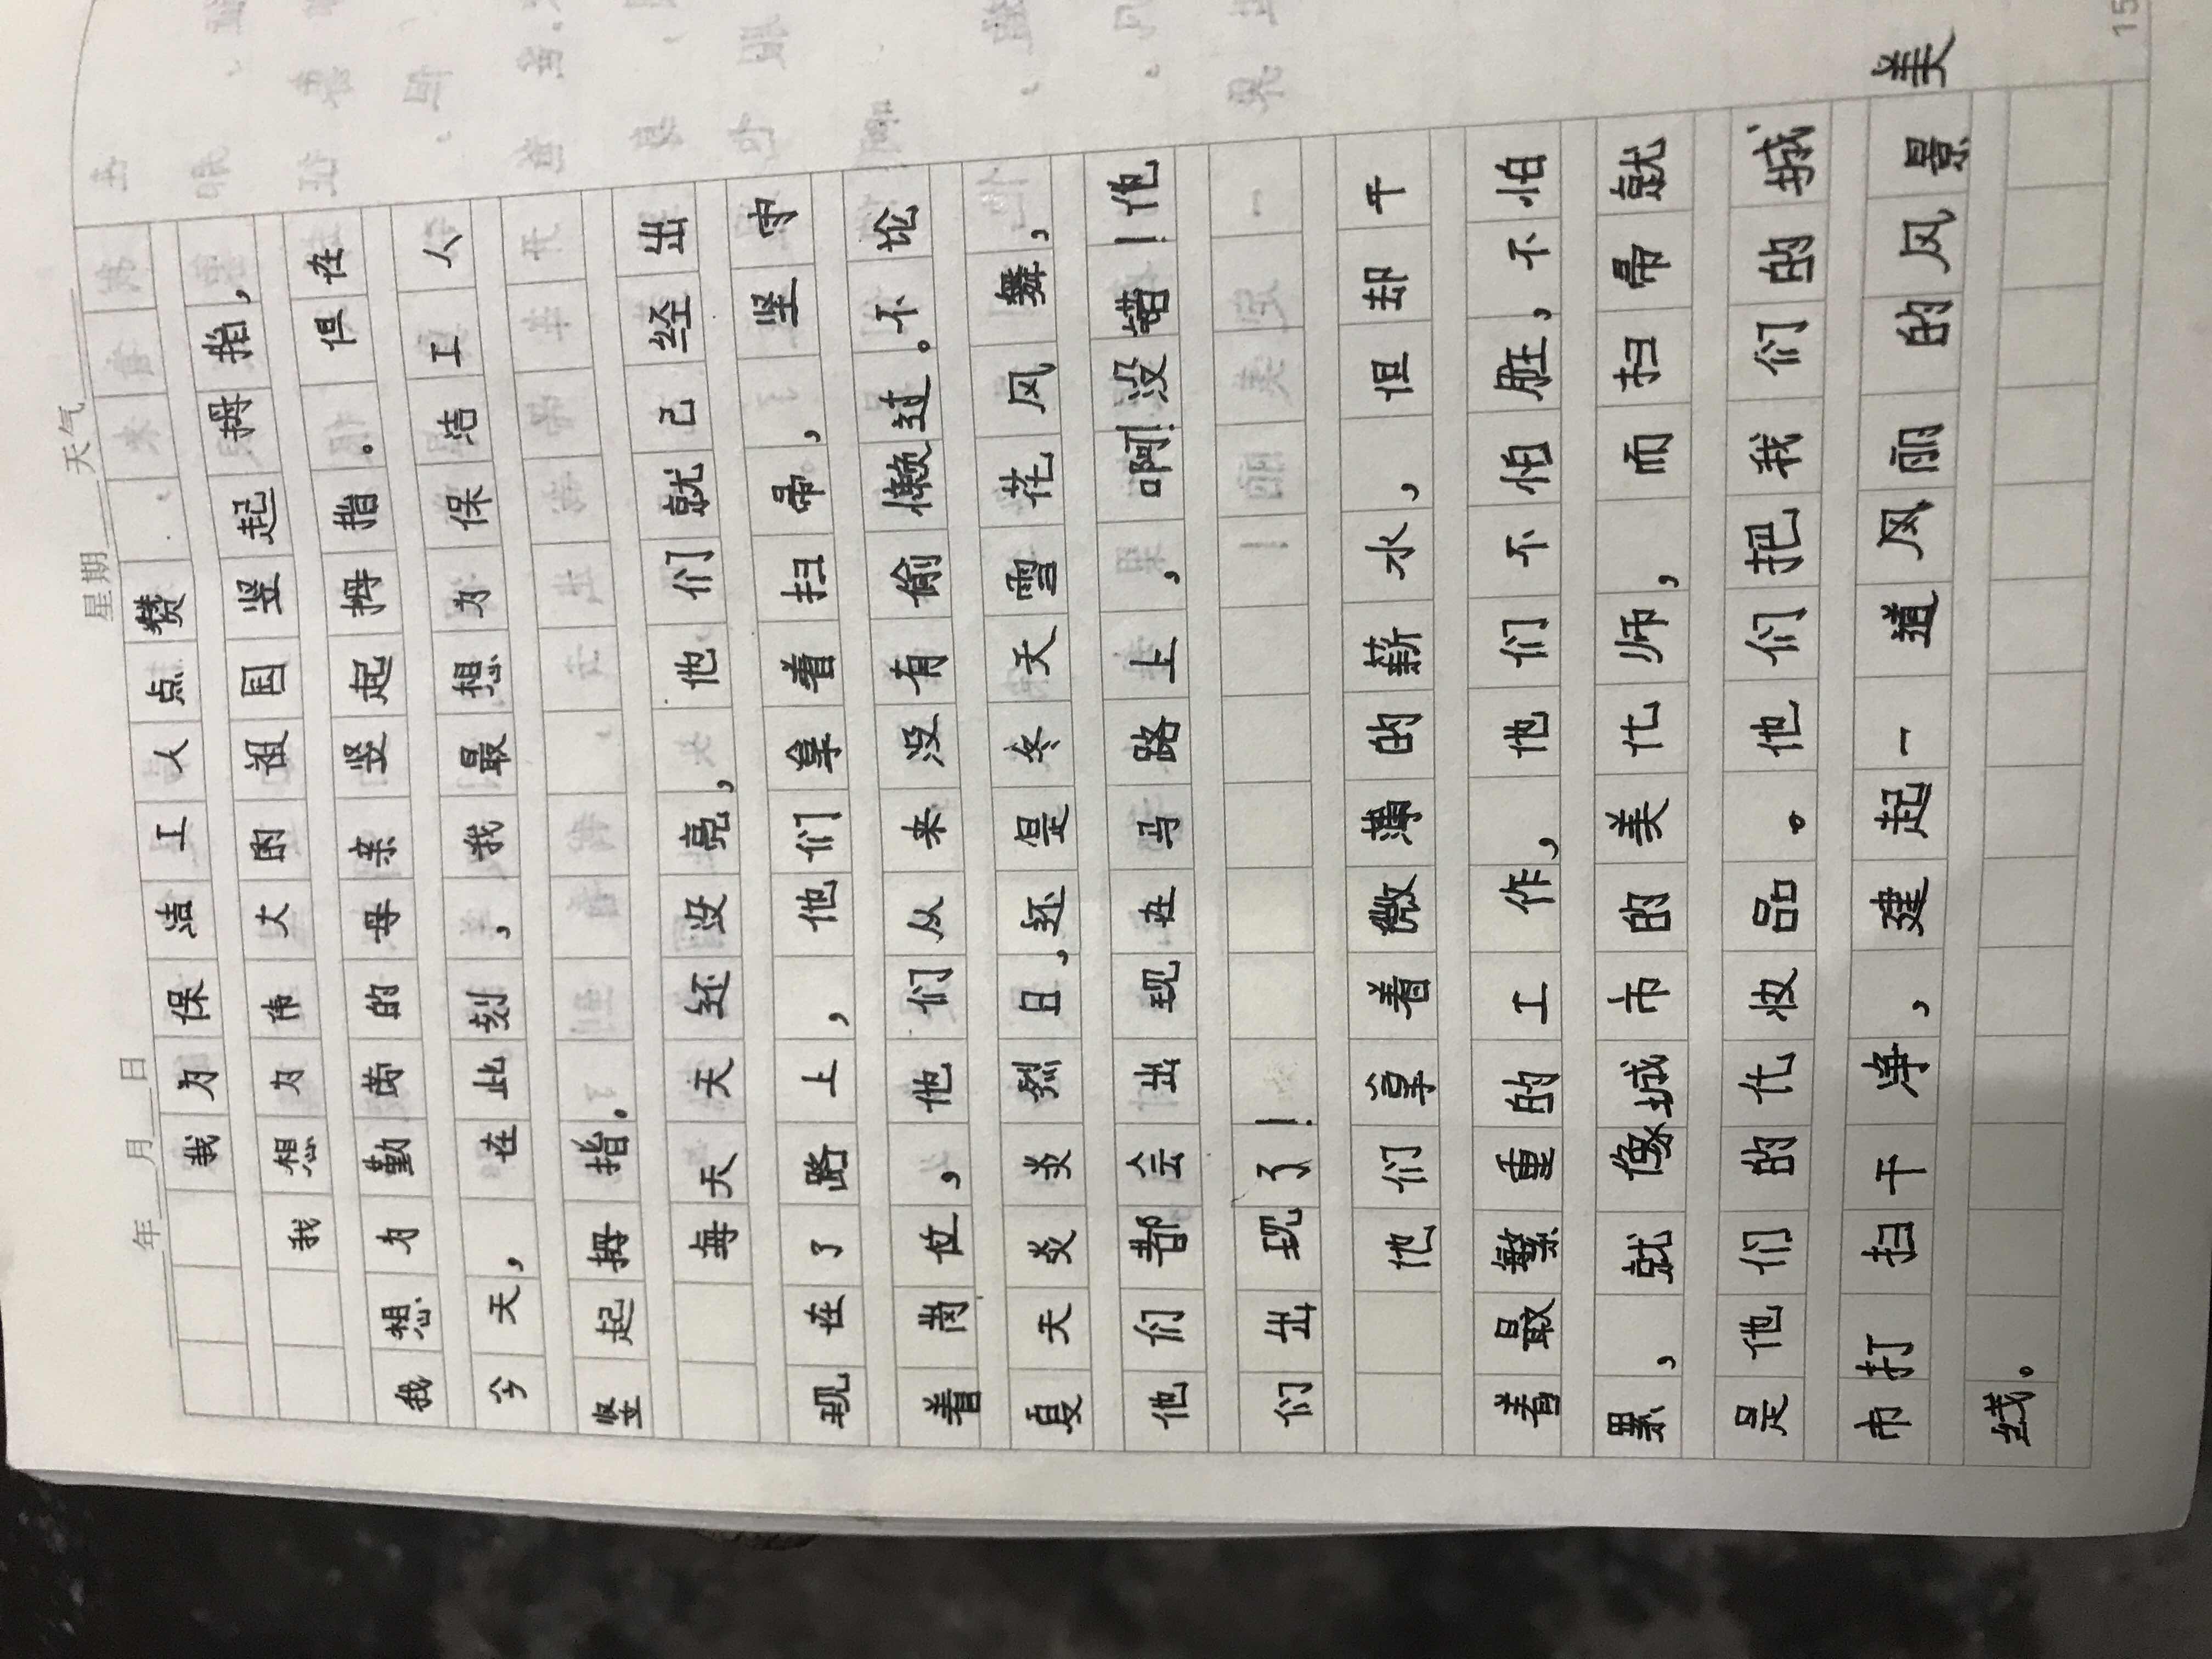 年 月 日 星期 天气
我为保洁工人点赞
我想为伟大的祖国竖起拇指,
我想为勤劳的母亲竖起拇指。但在
今天,在此刻,我最想为保洁工人
竖起拇指。
每天天还没亮,他们就己经出
现在了路上,他们拿着扫帚,坚守
着岗位,他们从来没有偷懒过。不论
夏天炎炎烈日,还是冬天雪花风舞,
他们都会出现在马路上,啊!没错!他
们出现了!
他们拿着微薄的薪水,但却干
着最繁重的工作,他们不怕脏,不怕
累,就像城市的美化师,而扫帚就
是他们的化妆品。他们把我们的城
市打扫干净,建起一道风丽的风景
美
线。
15